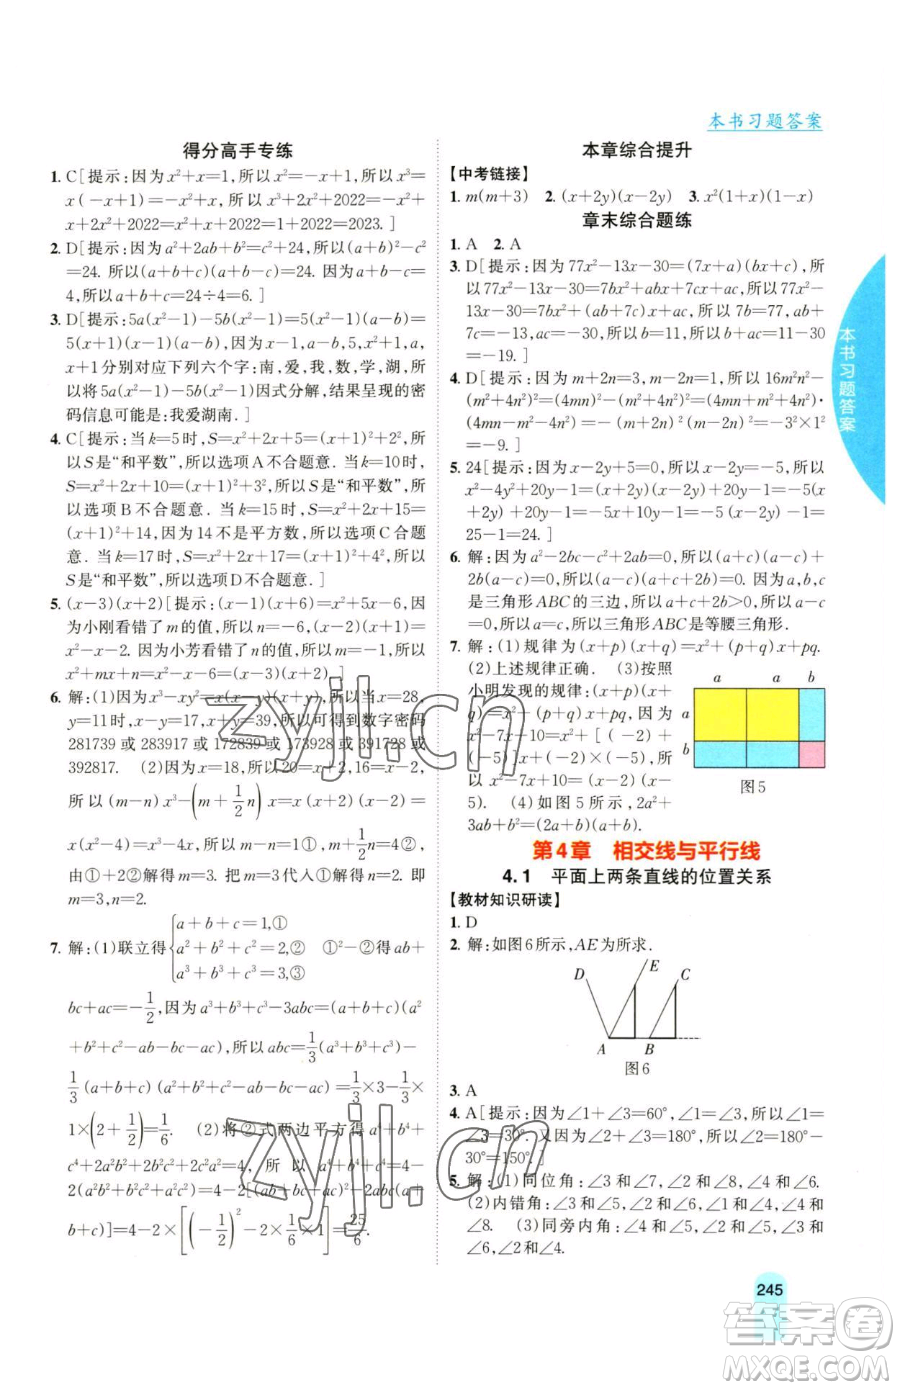 本书习题答案
得分高手专练
1. C[提示:因为x²+x=1,所以x²=-x+1,所以x³=
x(-x+1)=-x²+x,所以x³+2x²+2022=-x²+
x+2x²+2022=x²+x+2022=1+2022=2023.]
2. D[提示:因为a²+2ab+b²=c²+24,所以(a+b)²-c²
=24. 所以(a+b+c)(a+b-c)=24. 因为a+b+c=
4,所以a+b-c=24÷4=6.]
3. D[提示:5a(x²-1)-5b(x²-1)=5(x²-1)(a-b)=
5(x+1)(x-1)(a-b),因为x-1,a-b,5,x²+1,a,x
+1分别对应下列六个字:南,爱,我,数,学,湖,所
以将5a(x²-1)-5b(x²-1)因式分解,结果呈现的密
码信息可能是:我爱湖南.]
4. C[提示:当k=5时,S=x²+2x+5=(x+1)²+2²,所
以S是“和平数”,所以选项A不合题意. 当k=10时,
S=x²+2x+10=(x+1)²+3²,所以S是“和平数”,所
以选项B不合题意. 当k=15时,S=x²+2x+15=
(x+1)²+14,因为14不是平方数,所以选项C合题
意. 当k=17时,S=x²+2x+17=(x+1)²+4²,所以S
是“和平数”,所以选项D不合题意.]
5. (x-3)(x+2)[提示:(x-1)(x+6)=x²+5x-6,因
为小刚看错了m的值,所以n=-6,(x-2)(x+1)=
x²-x-2. 因为小芳看错了n的值,所以m=-1,所以
x²+mx+n=x²-x-6=(x-3)(x+2).]
6. 解:(1)因为x³-xy²=x(x-y)(x+y),所以当x=28,
y=11时,x-y=17,x+y=39,所以可得到数字密码
281739或283917或172839或173928或391728或
392817. (2)因为x=18,所以20=x+2,16=x-2,
所以(m-n)x³-(m+1/2n)x=x(x+2)(x-2)=
x(x²-4)=x³-4x,所以m-n=1①,m+1/2n=4②,
由①+②×2解得m=3. 把m=3代入①解得n=2. 即
m=3,n=2.
7. 解:(1)联立得{a+b+c=1,① a²+b²+c²=2,② a³+b³+c³=3,③ ①²-②得ab+
bc+ac=-1/2,因为a³+b³+c³-3abc=(a+b+c)(a²
+b²+c²-ab-bc-ac),所以abc=1/3(a³+b³+c³)-
1/3(a+b+c)(a²+b²+c²-ab-bc-ac)=1/3×3-1/3×
1×(2+1/2)=1/6. (2)将②式两边平方得a⁴+b⁴+
c⁴+2a²b²+2b²c²+2a²c²=4,所以a⁴+b⁴+c⁴=4-
2(a²b²+b²c²+a²c²)=4-2[(ab+bc+ac)²-2abc(a+
b+c)]=4-2×[(-1/2)²-2×1/6×1]=25/6.
本章综合提升
【中考链接】
1. m(m+3) 2. (x+2y)(x-2y) 3. x²(1+x)(1-x)
章末综合题练
1. A 2. A
3. D[提示:因为77x²-13x-30=(7x+a)(bx+c),所
以77x²-13x-30=7bx²+abx+7cx+ac,所以77x²-
13x-30=7bx²+(ab+7c)x+ac,所以7b=77,ab+
7c=-13,ac=-30,所以b=11,所以a=5,c=-6
=-19.]
4. D[提示:因为m+2n=3,m-2n=1,所以16m²n²-
(m²+4n²)²=(4mn)²-(m²+4n²)²=(4mn+m²+4n²)
(4mn-m²-4n²)=-(m+2n)²(m-2n)²=-3²×1²=
-9.]
5. 24[提示:因为x-2y+5=0,所以x-2y=-5,所以
x²-4y²+20y-1=(x+2y)(x-2y)+20y-1=
-5(x+2y)+20y-1=-5x+10y-1=-5(x-2y)-1=
25-1=24.]
6. 解:因为a²-2bc-c²+2ab=0,所以(a+c)(a-c)+
2b(a-c)=0,所以(a-c)(a+c+2b)=0,因为a,b,c
是三角形ABC的三边,所以a+c+2b>0,所以a-c
=0,所以a=c,所以三角形ABC是等腰三角形.
7. 解:(1)规律为(x+p)(x+q)=x²+(p+q)x+pq.
(2)上述规律正确. (3)按照
小明发现的规律:(x+p)(x
+q)=x²+(p+q)x+pq,因
为x²-7x+10=x²+[(-2)+
(-5)]x+(-2)×(-5),所
以x²-7x+10=(x-2)(x-
5). (4)如图5所示,2a²+
3ab+b²=(2a+b)(a+b).
a a b
a
b
图5
第4章 相交线与平行线
4.1 平面上两条直线的位置关系
【教材知识研读】
1. D
2. 解:如图6所示,AE为所求.
D E C
A B
图6
3. A
4. A[提示:因为∠1+∠3=60°,∠1=∠3,所以∠1=
∠3=30°. 又因为∠2+∠3=180°,所以∠2=180°-
30°=150°.]
5. (1)同位角:∠3和∠7,∠2和∠8,∠4和∠6.
(2)内错角:∠1和∠4,∠3和∠5,∠2和∠6,∠4和
∠8. (3)同旁内角:∠4和∠5,∠2和∠4,∠3和
∠6,∠2和∠5,∠4和∠7,∠2和∠4.
本书习题答案
245
zyjl.cn
zyjl.cn
答案圈
MXQE.COM